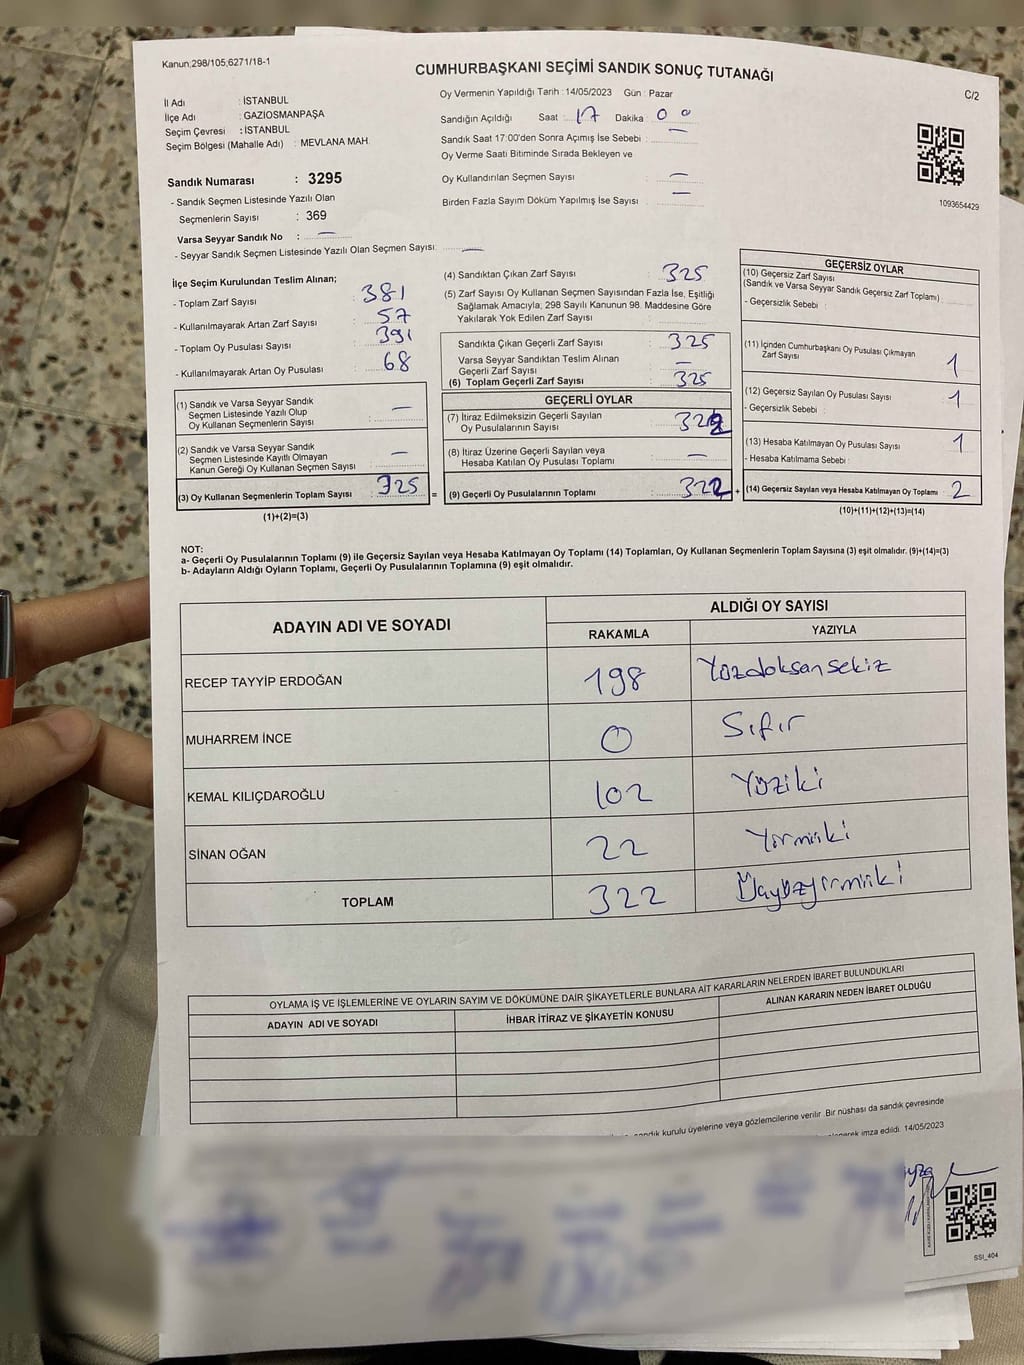 Kanun;298/105;6271/18-1
CUMHURBAŞKANI SEÇİMİ SANDIK SONUÇ TUTANAĞI
C/2
İl Adı : İSTANBUL
İlçe Adı : GAZİOSMANPAŞA
Seçim Çevresi : İSTANBUL
Seçim Bölgesi (Mahalle Adı) : MEVLANA MAH.
Sandık Numarası : 3295
- Sandık Seçmen Listesinde Yazılı Olan
Seçmenlerin Sayısı : 369
Varsa Seyyar Sandık No : —
- Seyyar Sandık Seçmen Listesinde Yazılı Olan Seçmen Sayısı: —
Oy Vermenin Yapıldığı Tarih : 14/05/2023 Gün : Pazar
Sandığın Açıldığı Saat : 17 Dakika 00
Sandık Saat 17:00'den Sonra Açımış İse Sebebi : —
Oy Verme Saati Bitiminde Sırada Bekleyen ve
Oy Kullandırılan Seçmen Sayısı —
Birden Fazla Sayım Döküm Yapılmış İse Sayısı : —
1093654429
İlçe Seçim Kurulundan Teslim Alınan;
- Toplam Zarf Sayısı : 381
- Kullanılmayarak Artan Zarf Sayısı : 57
- Toplam Oy Pusulası Sayısı : 391
- Kullanılmayarak Artan Oy Pusulası : 68
(1) Sandık ve Varsa Seyyar Sandık
Seçmen Listesinde Yazılı Olup
Oy Kullanan Seçmenlerin Sayısı : —
(2) Sandık ve Varsa Seyyar Sandık
Seçmen Listesinde Kayıtlı Olmayan
Kanun Gereği Oy Kullanan Seçmen Sayısı : —
(3) Oy Kullanan Seçmenlerin Toplam Sayısı : 325 =
(1)+(2)=(3)
(4) Sandıktan Çıkan Zarf Sayısı : 325
(5) Zarf Sayısı Oy Kullanan Seçmen Sayısından Fazla İse, Eşitliği
Sağlamak Amacıyla, 298 Sayılı Kanunun 98. Maddesine Göre
Yakılarak Yok Edilen Zarf Sayısı :
Sandıkta Çıkan Geçerli Zarf Sayısı : 325
Varsa Seyyar Sandıktan Teslim Alınan
Geçerli Zarf Sayısı : —
(6) Toplam Geçerli Zarf Sayısı : 325
GEÇERLİ OYLAR
(7) İtiraz Edilmeksizin Geçerli Sayılan
Oy Pusulalarının Sayısı : 322
(8) İtiraz Üzerine Geçerli Sayılan veya
Hesaba Katılan Oy Pusulası Toplamı : —
(9) Geçerli Oy Pusulalarının Toplamı : 322 +
GEÇERSİZ OYLAR
(10) Geçersiz Zarf Sayısı
(Sandık ve Varsa Seyyar Sandık Geçersiz Zarf Toplamı)
- Geçersizlik Sebebi :
(11) İçinden Cumhurbaşkanı Oy Pusulası Çıkmayan
Zarf Sayısı 1
(12) Geçersiz Sayılan Oy Pusulası Sayısı 1
- Geçersizlik Sebebi :
(13) Hesaba Katılmayan Oy Pusulası Sayısı 1
- Hesaba Katılmama Sebebi :
(14) Geçersiz Sayılan veya Hesaba Katılmayan Oy Toplamı : 2
(10)+(11)+(12)+(13)=(14)
NOT:
a- Geçerli Oy Pusulalarının Toplamı (9) ile Geçersiz Sayılan veya Hesaba Katılmayan Oy Toplamı (14) Toplamları, Oy Kullanan Seçmenlerin Toplam Sayısına (3) eşit olmalıdır. (9)+(14)=(3)
b- Adayların Aldığı Oyların Toplamı, Geçerli Oy Pusulalarının Toplamına (9) eşit olmalıdır.
ADAYIN ADI VE SOYADI
ALDIĞI OY SAYISI
RAKAMLA YAZIYLA
RECEP TAYYİP ERDOĞAN 198 Yüzdoksansekiz
MUHARREM İNCE 0 Sıfır
KEMAL KILIÇDAROĞLU 102 Yüziki
SİNAN OĞAN 22 Yirmiiki
TOPLAM 322 Üçyüzyirmiiki
OYLAMA İŞ VE İŞLEMLERİNE VE OYLARIN SAYIM VE DÖKÜMÜNE DAİR ŞİKAYETLERLE BUNLARA AİT KARARLARIN NELERDEN İBARET BULUNDUKLARI
ADAYIN ADI VE SOYADI
İHBAR İTİRAZ VE ŞİKAYETİN KONUSU
ALINAN KARARIN NEDEN İBARET OLDUĞU
sandık kurulu üyelerine veya gözlemcilerine verilir. Bir nüshası da sandık çevresinde
imza edildi. 14/05/2023
SSI_404